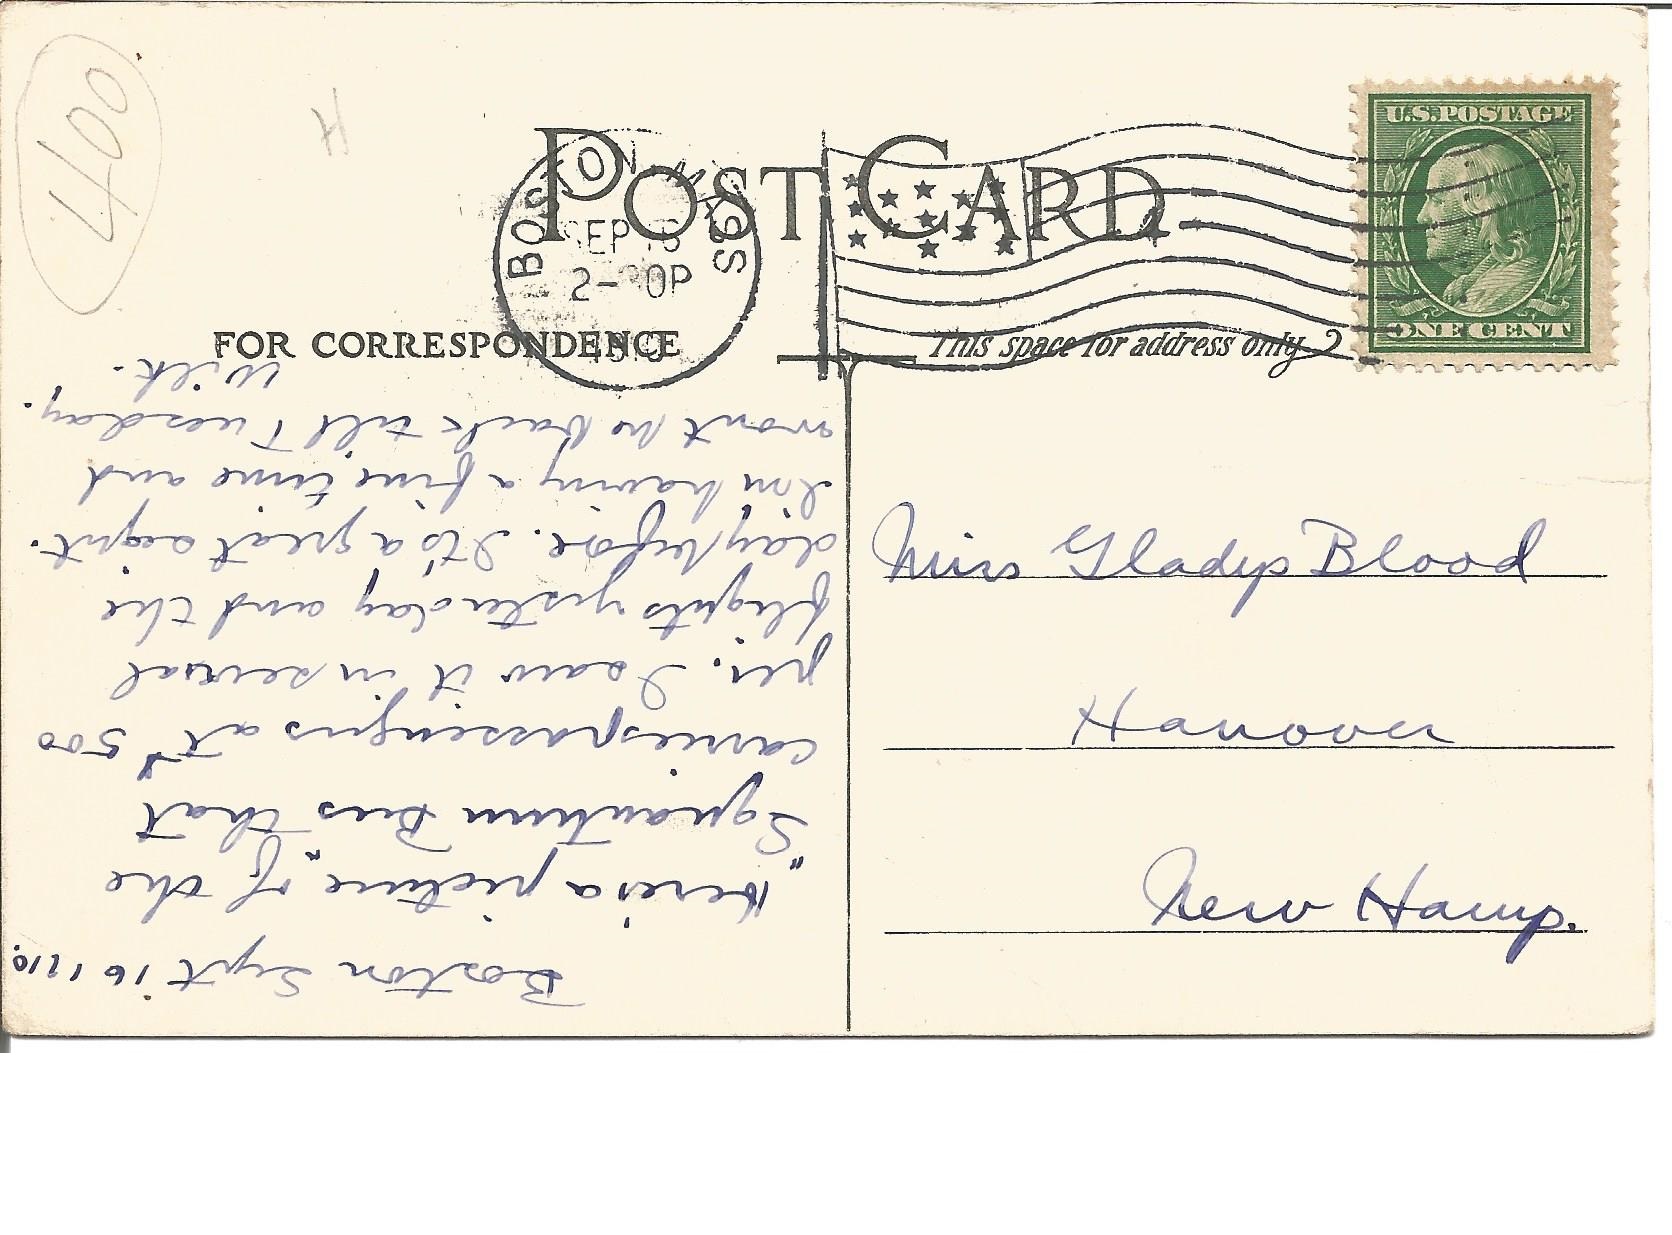 400
H
POST CARD
BOSTON, MASS
SEP 16
2- 30P
1910
U.S. POSTAGE
ONE CENT
FOR CORRESPONDENCE
This space for address only
Miss Gladys Blood
Hanover
New Hamp.
Boston Sept 16 1910.
Here's a picture of the
"Squantum Bus" that
carries passengers at $500
per. I saw it in several
flights yesterday and the
day before. It's a great sight.
I'm having a fine time and
won't be back till Tuesday.
Wilk.